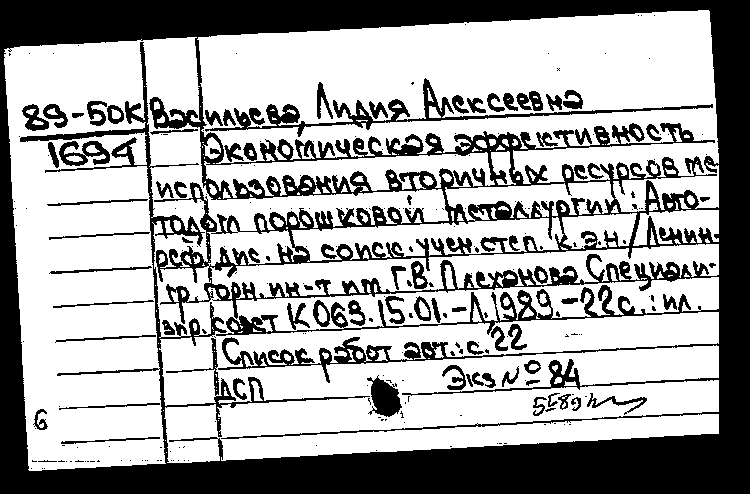 89-50К Васильева, Лидия Алексеевна
1694 Экономическая эффективность
использования вторичных ресурсов ме-
тодом порошковой металлургии : Авто-
реф. дис. на соиск. учен. степ. к.э.н. / Ленин-
гр. горн. ин-т им. Г.В. Плеханова. Специали-
зир. совет К 063.15.01. - Л. 1989. - 22 с. : ил.
Список работ авт.: с. 22
ДСП Экз № 84
6